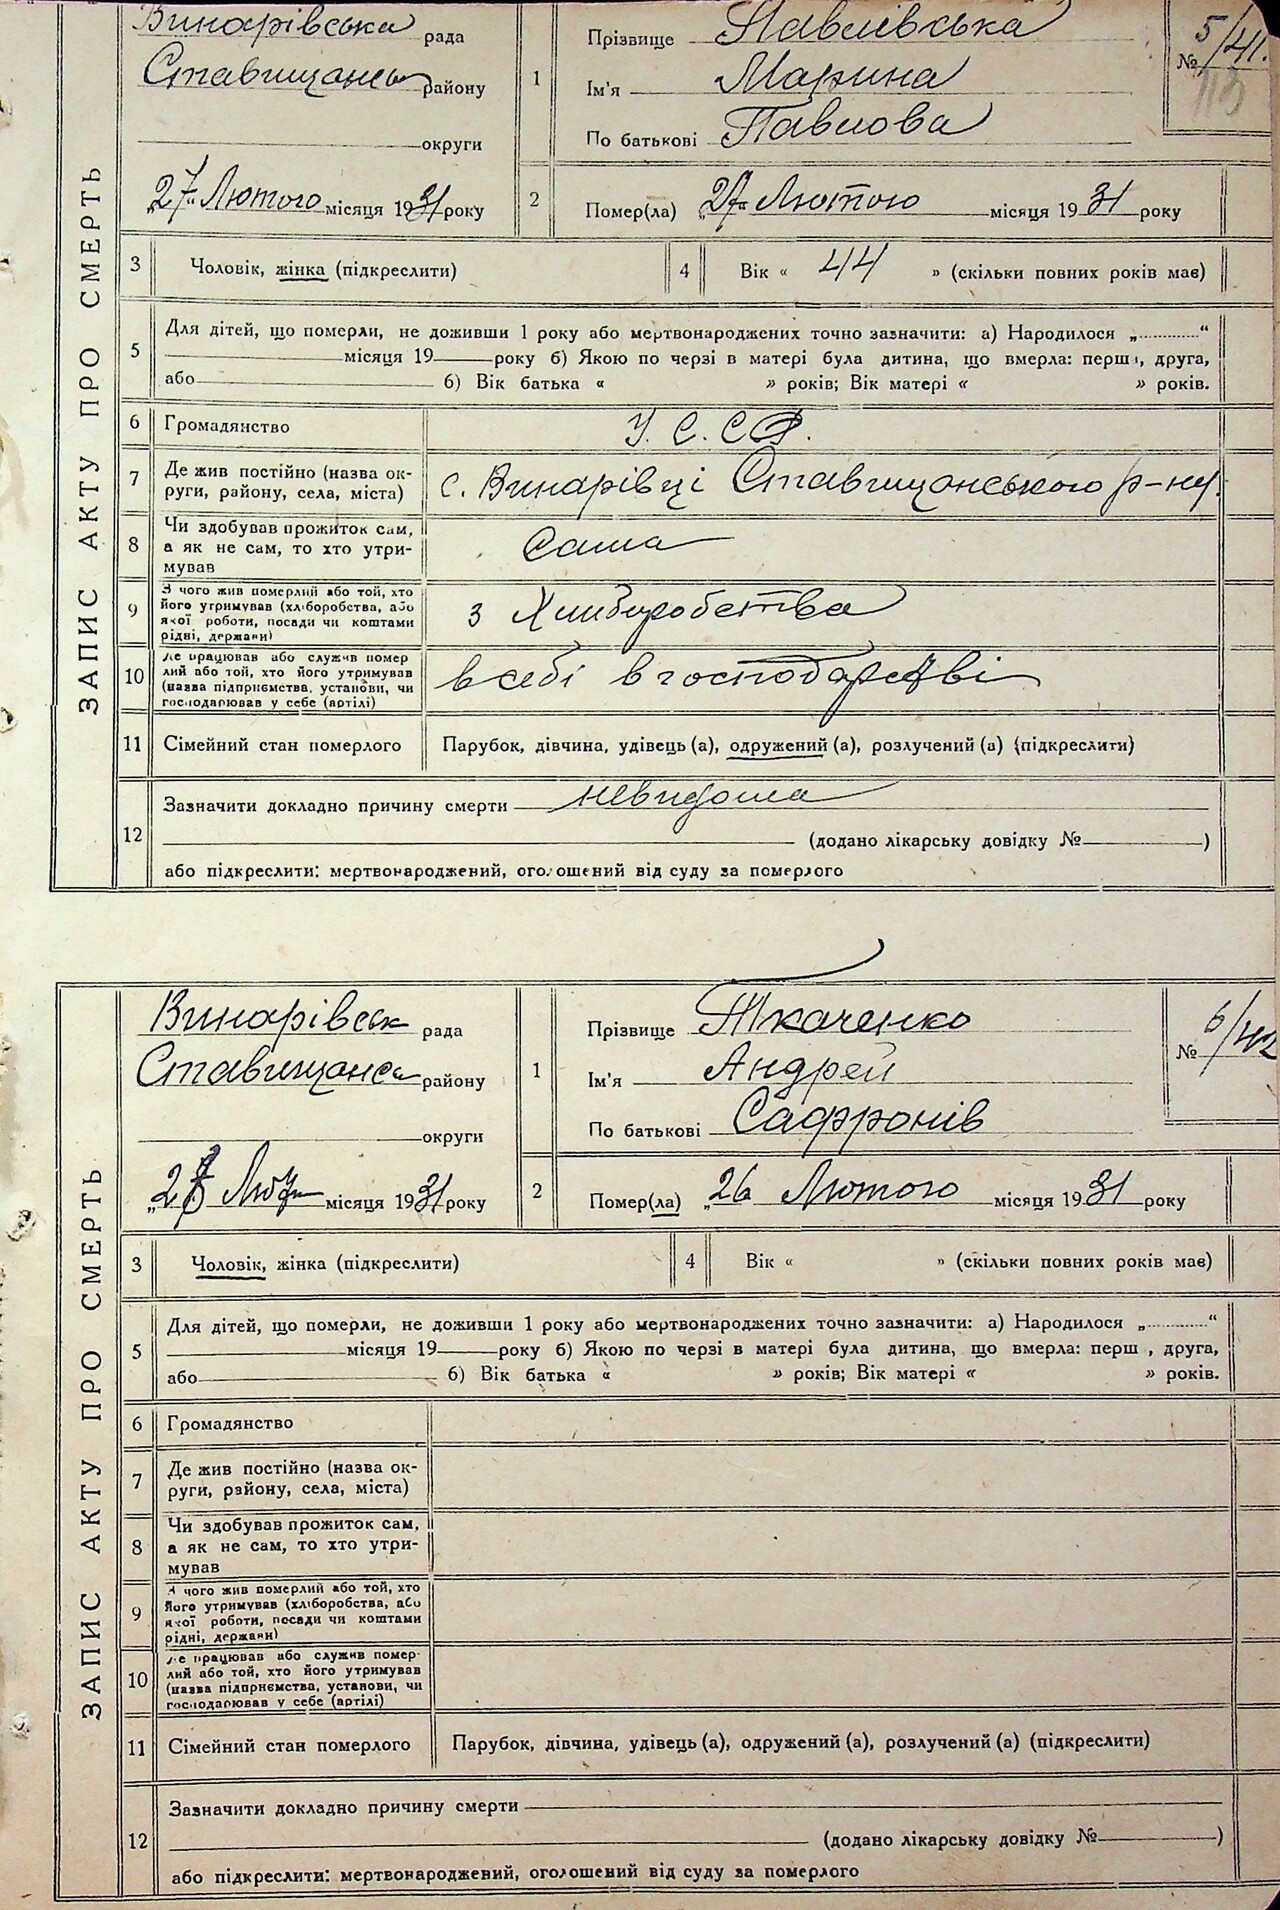 ЗАПИС АКТУ ПРО СМЕРТЬ
Винарівська рада
Ставищансь району
округи
„27“ Лютого місяця 1931 року
1
Прізвище Павлівська
Ім'я Марина
По батькові Павлова
№ 5/41.
113
2
Помер(ла) „27“ Лютого місяця 1931 року
3 Чоловік, жінка (підкреслити)
4 Вік « 44 » (скільки повних років має)
5
Для дітей, що померли, не доживши 1 року або мертвонароджених точно зазначити: а) Народилося „............“
місяця 19 року б) Якою по черзі в матері була дитина, що вмерла: перш, друга,
або б) Вік батька « » років; Вік матері « » років.
6 Громадянство У. С. С. Р.
7 Де жив постійно (назва ок-
руги, району, села, міста) с. Винарівці Ставищанського р-ну.
8 Чи здобував прожиток сам,
а як не сам, то хто утри-
мував сама
9 З чого жив померлий або той, хто
його утримував (хліборобства, або
якої роботи, посади чи коштами
рідні, держави) з Хліборобства
10 Де працював або служив помер
лий або той, хто його утримував
(назва підприємства, установи, чи
господарював у себе (артілі) в себі в господарстві
11 Сімейний стан померлого Парубок, дівчина, удівець (а), одружений (а), розлучений (а) (підкреслити)
12
Зазначити докладно причину смерти невидома
(додано лікарську довідку № )
або підкреслити: мертвонароджений, оголошений від суду за померлого
ЗАПИС АКТУ ПРО СМЕРТЬ
Винарівськ рада
Ставищансь району
округи
„28 місяця 1931 року
1
Прізвище Ткаченко
Ім'я Андрей
По батькові Сафронів
№ 6/42
2
Помер(ла) „26 Лютого місяця 1931 року
3 Чоловік, жінка (підкреслити)
4 Вік « » (скільки повних років має)
5
Для дітей, що померли, не доживши 1 року або мертвонароджених точно зазначити: а) Народилося „............“
місяця 19 року б) Якою по черзі в матері була дитина, що вмерла: перш , друга,
або б) Вік батька « » років; Вік матері « » років.
6 Громадянство
7 Де жив постійно (назва ок-
руги, району, села, міста)
8 Чи здобував прожиток сам,
а як не сам, то хто утри-
мував
9 З чого жив померлий або той, хто
його утримував (хліборобства, або
якої роботи, посади чи коштами
рідні, держави)
10 Де працював або служив помер-
лий або той, хто його утримував
(назва підприємства, установи, чи
господарював у себе (артілі)
11 Сімейний стан померлого Парубок, дівчина, удівець (а), одружений (а), розлучений (а) (підкреслити)
12
Зазначити докладно причину смерти
(додано лікарську довідку № )
або підкреслити: мертвонароджений, оголошений від суду за померлого